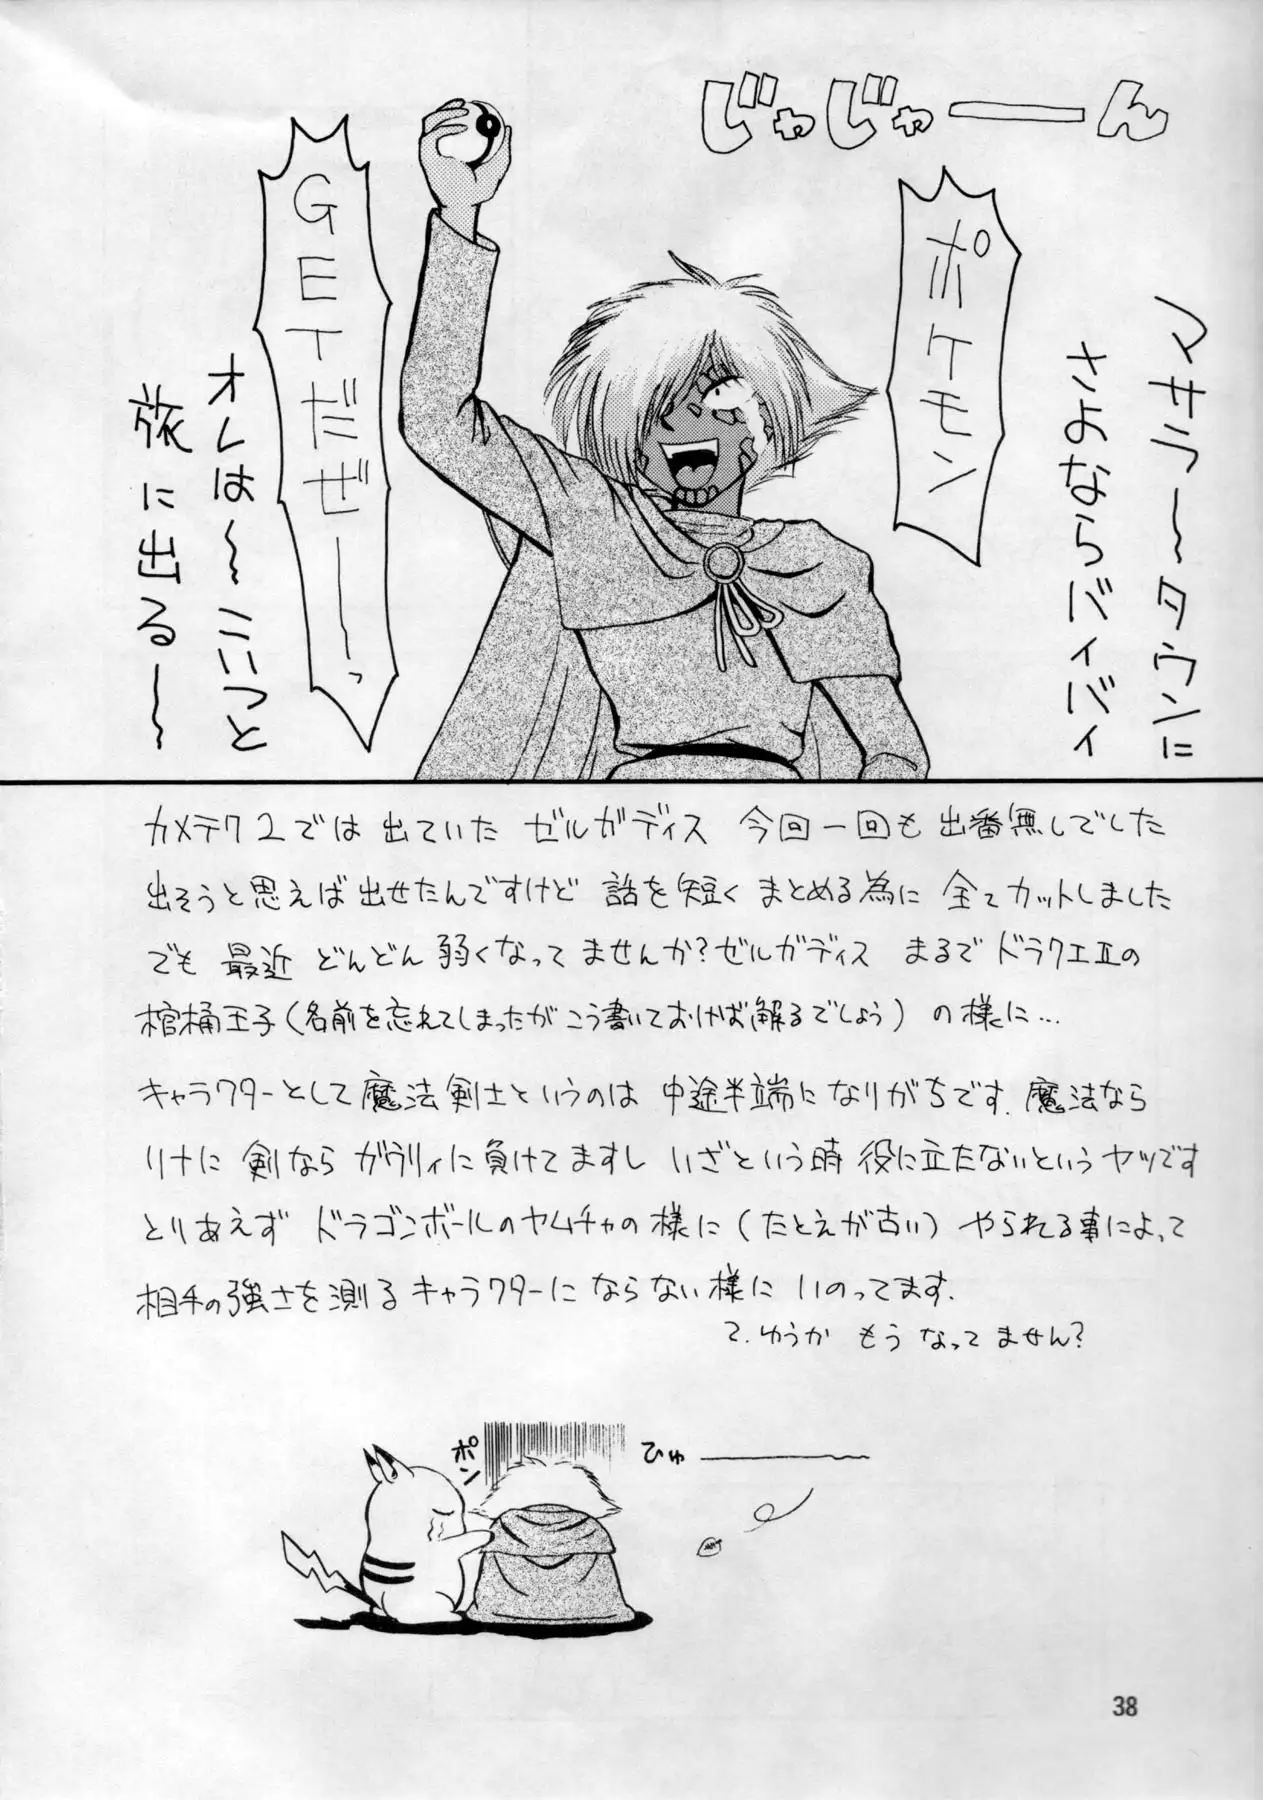 じゃじゃーん
ポケモン
GETだぜーーっ
マサラ～タウンに
さよならバイバイ
オレは～こいつと
旅に出る～
カメテク2では 出ていた ゼルガディス 今回一回も 出番無しでした
出そうと思えば出せたんですけど 話を短く まとめる為に 全てカットしました
でも 最近 どんどん弱くなってませんか?ゼルガディス まるでドラクエⅡの
棺桶王子(名前を忘れてしまったが こう書いておけば解るでしょう) の様に…
キャラクターとして魔法剣士というのは 中途半端になりがちです.魔法なら
リナに 剣なら ガウリィに負けてますし いざという時 役に立たないというヤツです
とりあえず ドラゴンボールのヤムチャの様に(たとえが古い) やられる事によって
相手の強さを測るキャラクターにならない様に いのってます.
て.ゆうか もう なってません?
ポン
ひゅーーー
38